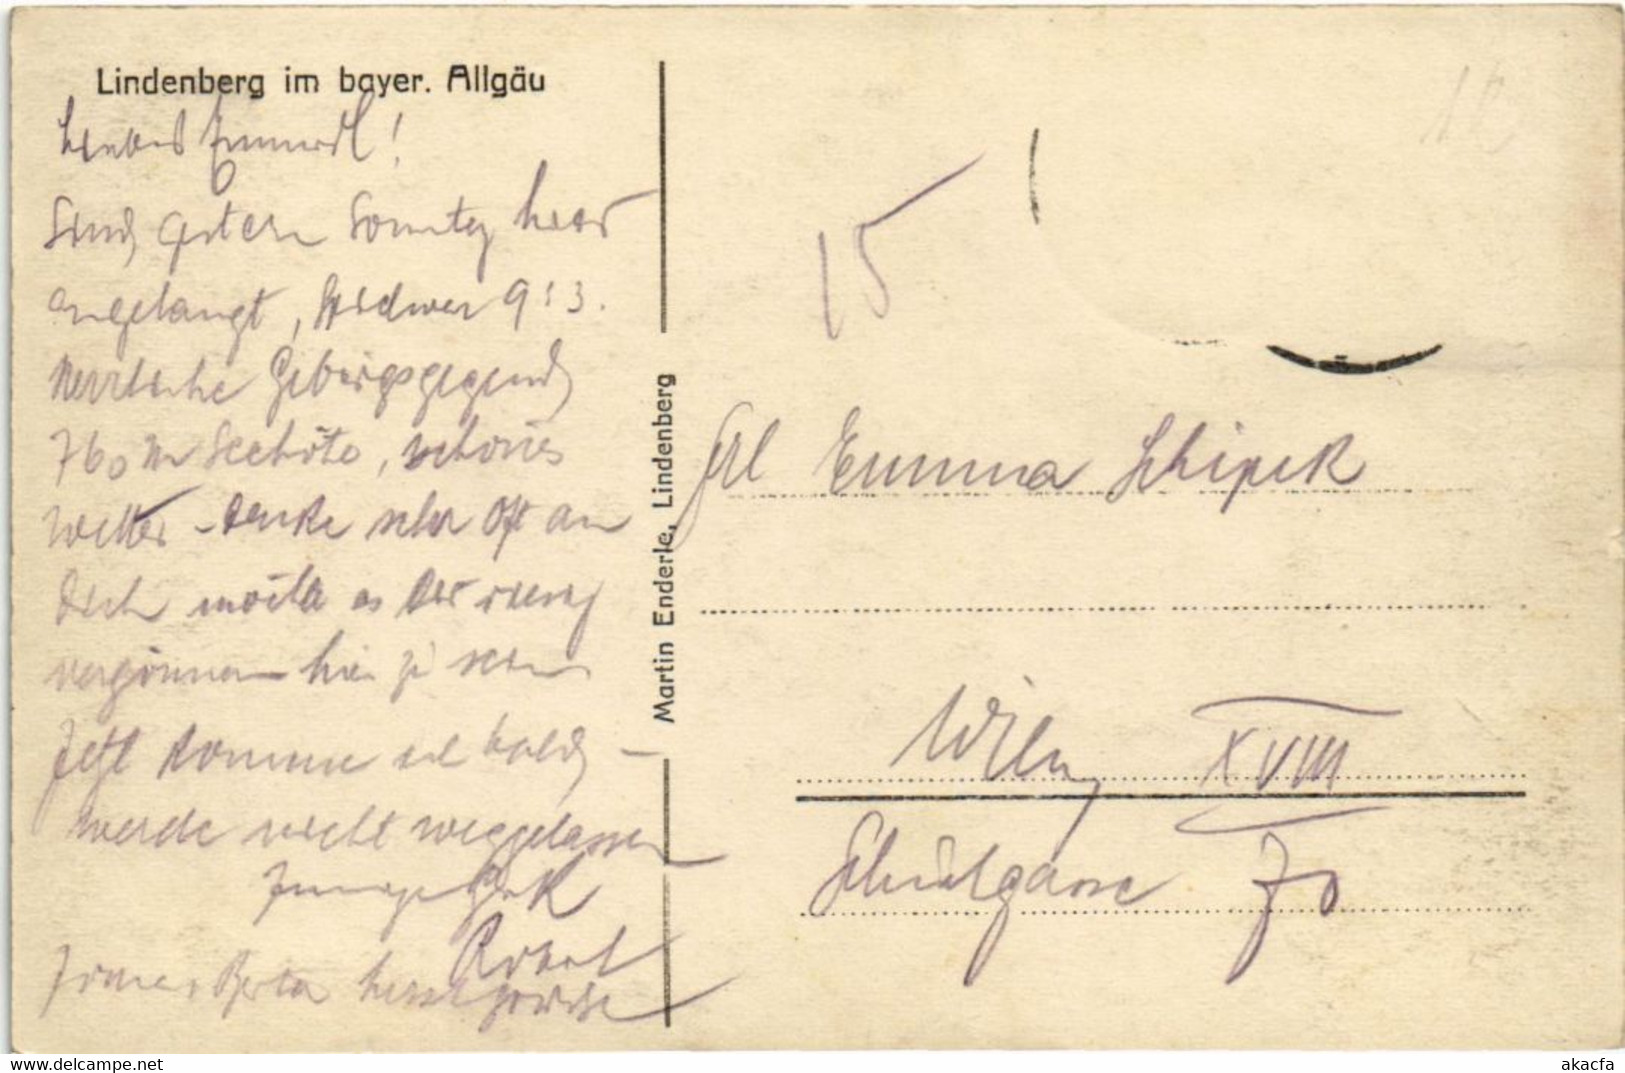 Lindenberg im bayer. Allgäu
Liebes Emmerl!
Sind gestern Sonntag hier
angelangt, 9:3.
Herrliche Gebirgsgegend
760 m Seehöhe, schönes
Wetter – denke sehr oft an
Dich möchte es Dir
vergönnen hier zu sein
Jetzt komme ich bald –
werde nicht weggelassen
Innige
Robert
Berta herzl Grüsse
Martin Enderle, Lindenberg
15
Frl Emma Schipek
Wien XVIII
Schulgasse 70
delcampe.net
akacfa